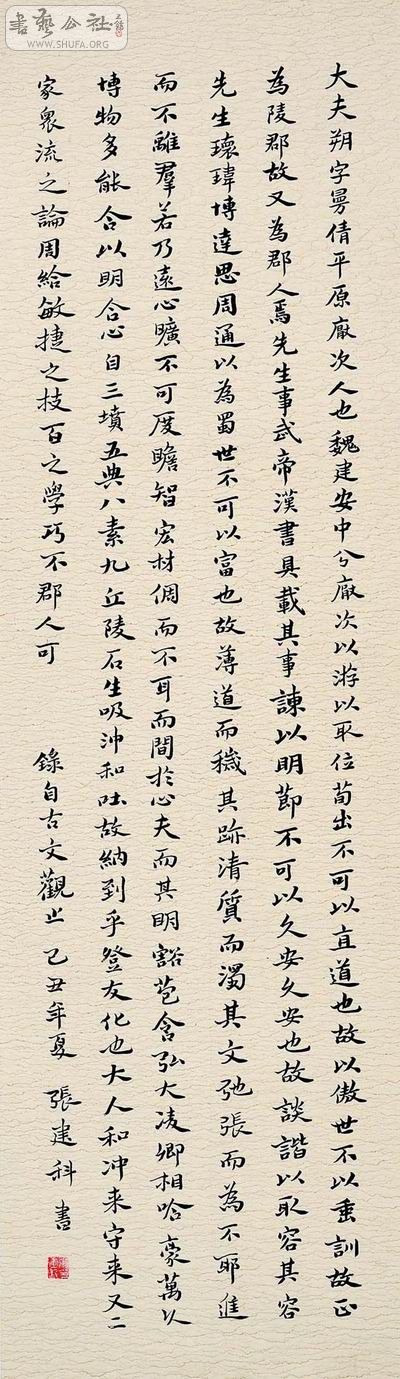 大夫朔字曼倩平原厭次人也魏建安中兮厭次以游以取位苟出不可以直道也故以傲世不以垂訓故正
為陵郡故又為郡人焉先生事武帝漢書具載其事諫以明節不可以久安久安也故談諧以取容其容
先生瓌瑋博達思周通以為蜀世不可以富也故薄道而穢其跡清質而濁其文弛張而為不耶進
而不離羣若乃遠心曠不可度瞻智宏材倜而不耳而間於心夫而其明豁苞含弘大凌卿相哈豪萬以
博物多能合以明合心自三墳五典八素九丘陵石生吸沖和吐故納到乎登友化也大人和沖来守来又二
家衆流之論周給敏捷之枝百之學巧不郡人可
錄自古文觀止己丑年夏張建科書
書藝公社
www.SHUFA.ORG